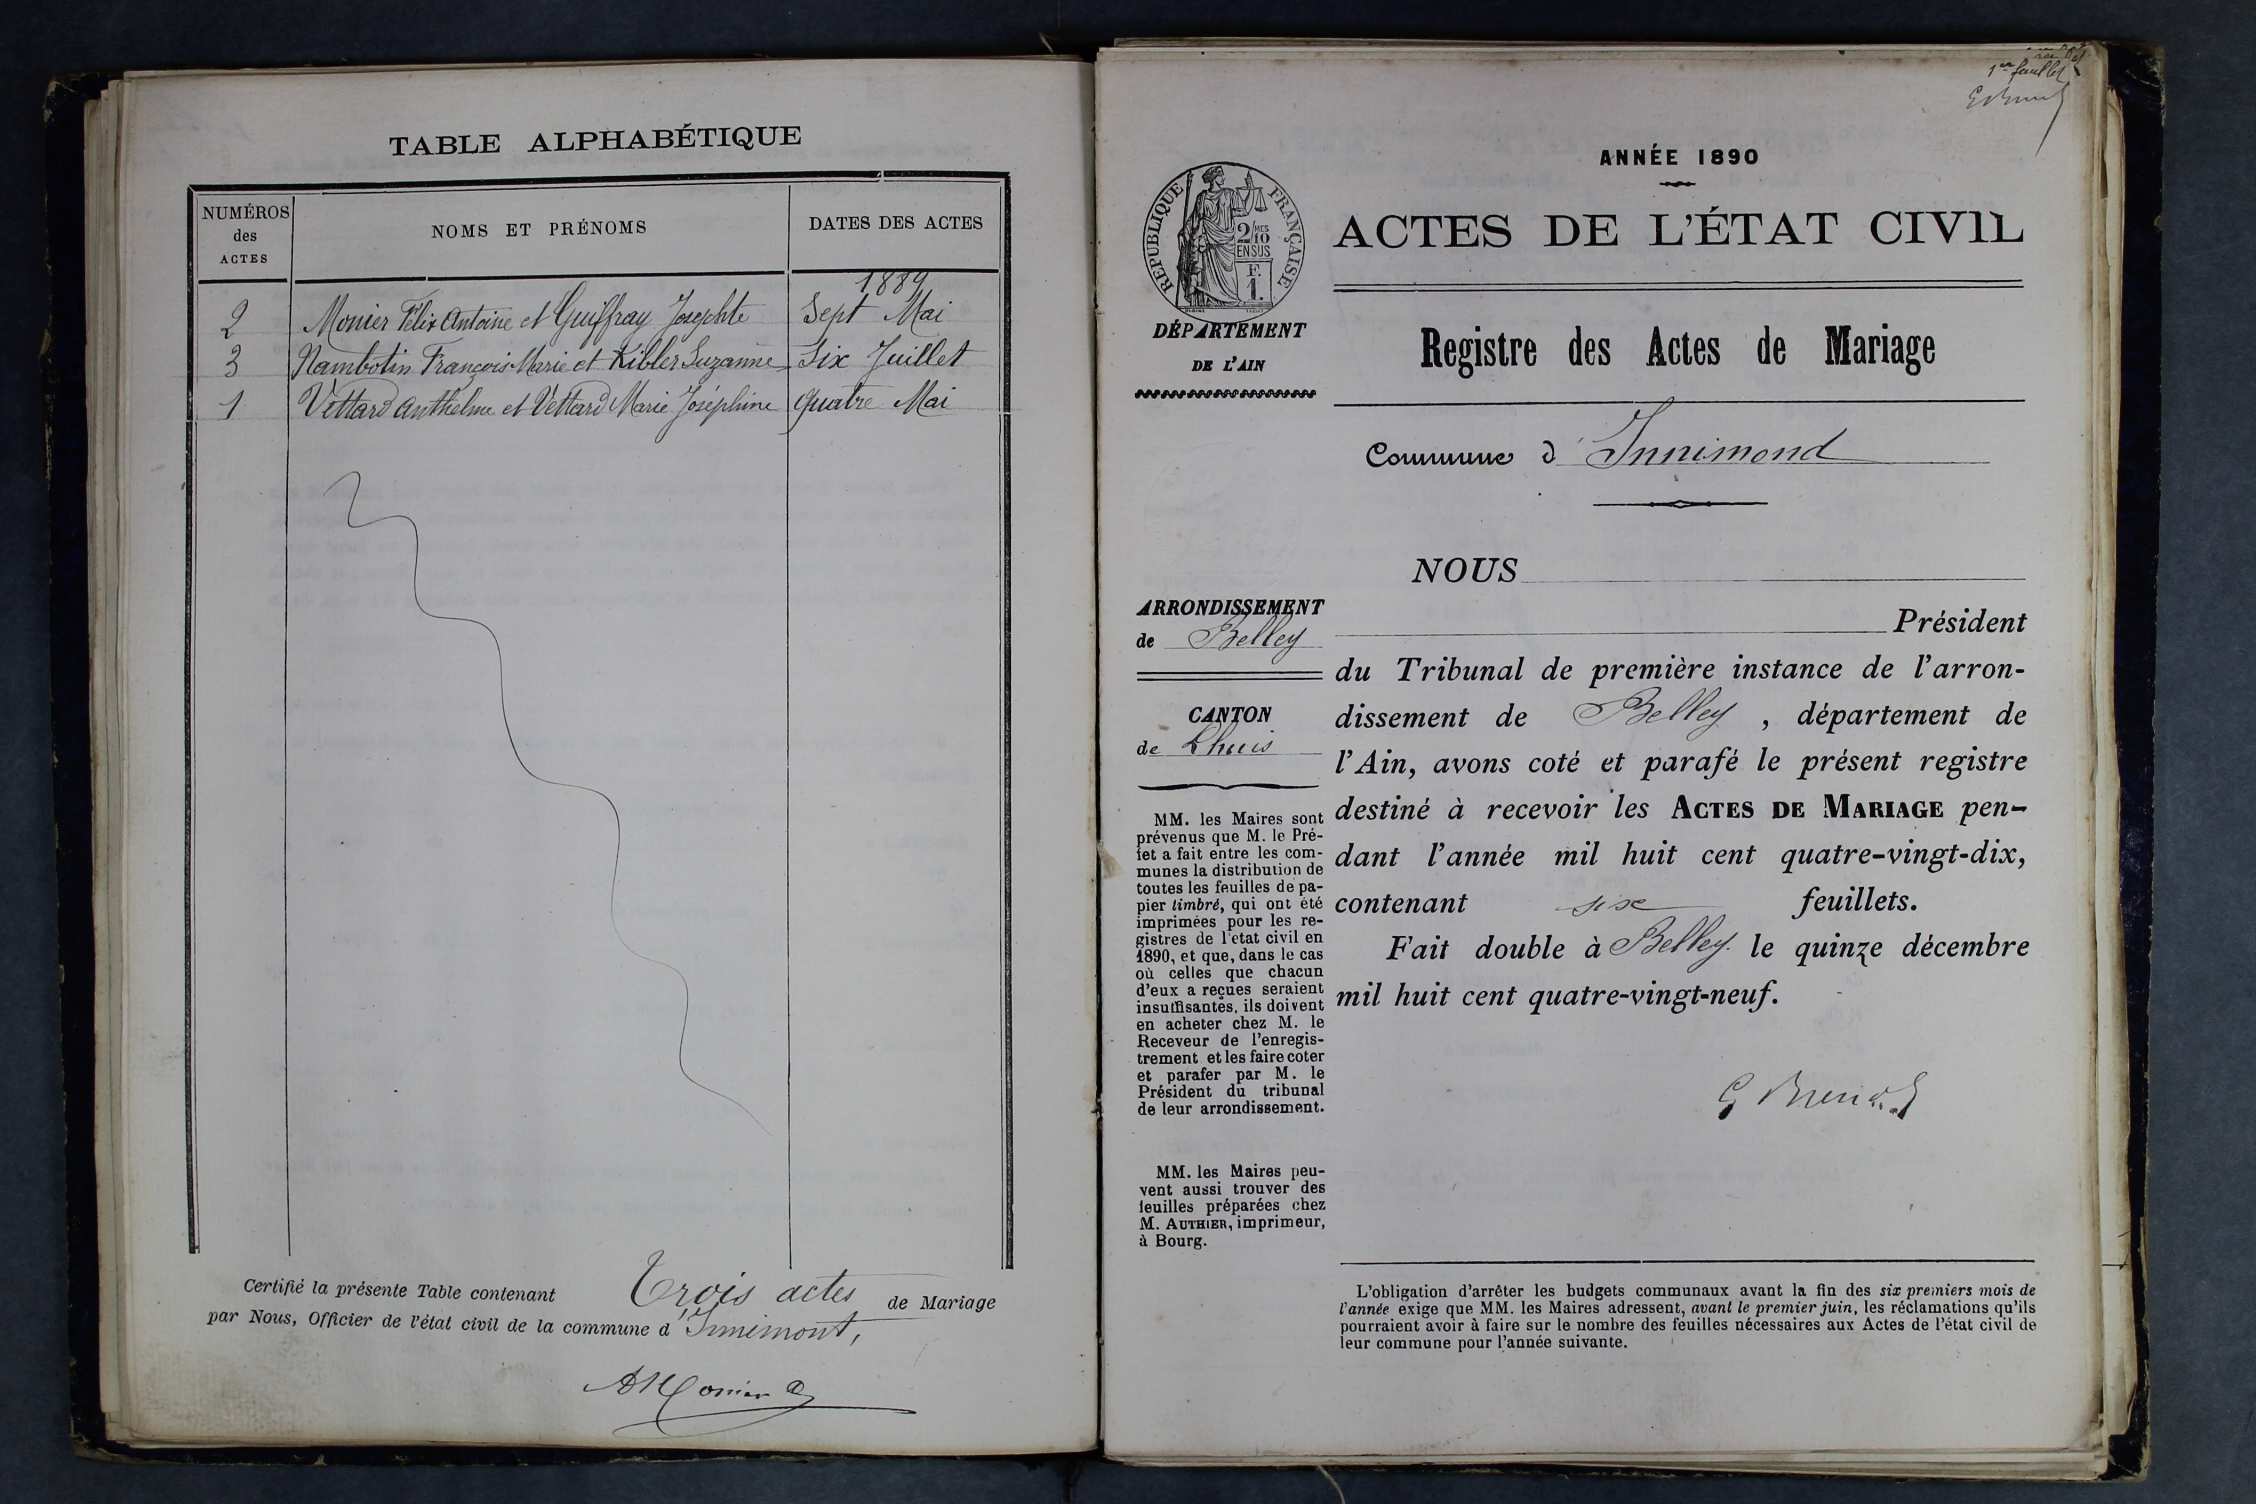 TABLE ALPHABÉTIQUE
NUMÉROS des ACTES
NOMS ET PRÉNOMS
DATES DES ACTES
1889
2 Monier Félix Antoine et Guiffray Josephte Sept Mai
3 Nambotin François Marie et Kibler Suzanne Six Juillet
1 Vettard Anthelme et Vettard Marie Joséphine Quatre Mai
Certifié la présente Table contenant Trois actes de Mariage
par Nous, Officier de l'état civil de la commune d'Innimont,
AMonier
1er feuillet
ANNÉE 1890
RÉPUBLIQUE FRANÇAISE
2 MES
10
EN SUS
F.
1.
ACTES DE L'ÉTAT CIVIL
DÉPARTEMENT
DE L'AIN
Registre des Actes de Mariage
Commune d'Innimond
ARRONDISSEMENT
de Belley
CANTON
de Lhuis
MM. les Maires sont
prévenus que M. le Pré-
fet a fait entre les com-
munes la distribution de
toutes les feuilles de pa-
pier timbré, qui ont été
imprimées pour les re-
gistres de l'état civil en
1890, et que, dans le cas
où celles que chacun
d'eux a reçues seraient
insuffisantes, ils doivent
en acheter chez M. le
Receveur de l'enregis-
trement et les faire coter
et parafer par M. le
Président du tribunal
de leur arrondissement.
MM. les Maires peu-
vent aussi trouver des
feuilles préparées chez
M. AUTHIER, imprimeur,
à Bourg.
NOUS
Président
du Tribunal de première instance de l'arron-
dissement de Belley, département de
l'Ain, avons coté et parafé le présent registre
destiné à recevoir les ACTES DE MARIAGE pen-
dant l'année mil huit cent quatre-vingt-dix,
contenant six feuillets.
Fait double à Belley. le quinze décembre
mil huit cent quatre-vingt-neuf.
L'obligation d'arrêter les budgets communaux avant la fin des six premiers mois de
l'année exige que MM. les Maires adressent, avant le premier juin, les réclamations qu'ils
pourraient avoir à faire sur le nombre des feuilles nécessaires aux Actes de l'état civil de
leur commune pour l'année suivante.